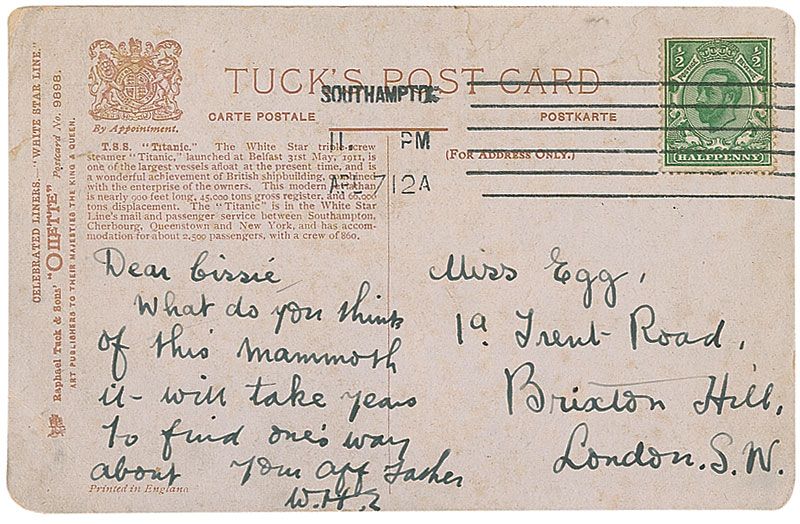 CELEBRATED LINERS.—"WHITE STAR LINE."
Raphael Tuck & Sons' "OILETTE" Postcard No. 9898.
ART PUBLISHERS TO THEIR MAJESTIES THE KING & QUEEN.
By Appointment.
TUCK'S POST CARD
CARTE POSTALE
POSTKARTE
(FOR ADDRESS ONLY.)
SOUTHAMPTON
11. PM
APL 7 12A
½ ½
POSTAGE
HALFPENNY
T.S.S. "Titanic." The White Star triple-screw
steamer "Titanic," launched at Belfast 31st May, 1911, is
one of the largest vessels afloat at the present time, and is
a wonderful achievement of British shipbuilding, combined
with the enterprise of the owners. This modern leviathan
is nearly 900 feet long, 45,000 tons gross register, and 66,000
tons displacement. The "Titanic" is in the White Star
Line's mail and passenger service between Southampton,
Cherbourg, Queenstown and New York, and has accom-
modation for about 2,500 passengers, with a crew of 860.
Dear Cissie
What do you think
of this mammoth
it will take years
to find one's way
about Your aff father
W.H.E
Printed in England
Miss Egg,
1a Trent Road,
Brixton Hill,
London. S.W.